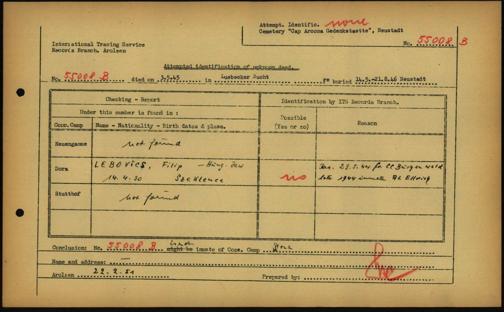 Attempt. Identific. none
Cemetery "Cap Arcona Gedenkstaette", Neustadt
No. 55008 B
International Tracing Service
Records Branch, Arolsen
Attempted identification of unknown dead.
No. 55008 B died on 3.5.45 in Luebecker Bucht buried 14.5.-21.8.46 Neustadt
Checking - Report
Identification by ITS Records Branch.
Under this number is found in :
Possible (Yes or no)
Reason
Conc.Camp
Name - Nationality - Birth dates & place.
Neuengamme
not found
Dora
LEBOVICS, Filip - Hung. Jew
14. 4. 30
no
Stutthof
not found
Conclusion: No. 55008 B might be inmate of Conc. Camp
Name and address:
Arolsen 22. 2. 51
Prepared by: